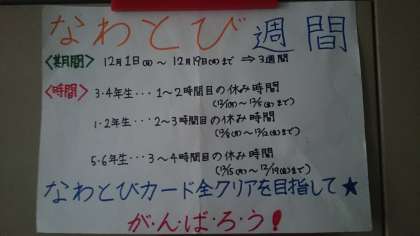 なわとび週間
<期間> 12月1日(月)～12月19日(金)まで ⇒3週間
<時間> 3・4年生・・・1～2時間目の休み時間
(12/1(月)～12/5(金)まで)
1・2年生・・・2～3時間目の休み時間
(12/8(月)～12/12(金)まで)
5・6年生・・・3～4時間目の休み時間
(12/15(月)～12/19(金)まで)
なわとびカード全クリアを目指して★
が・ん・ば・ろ・う!